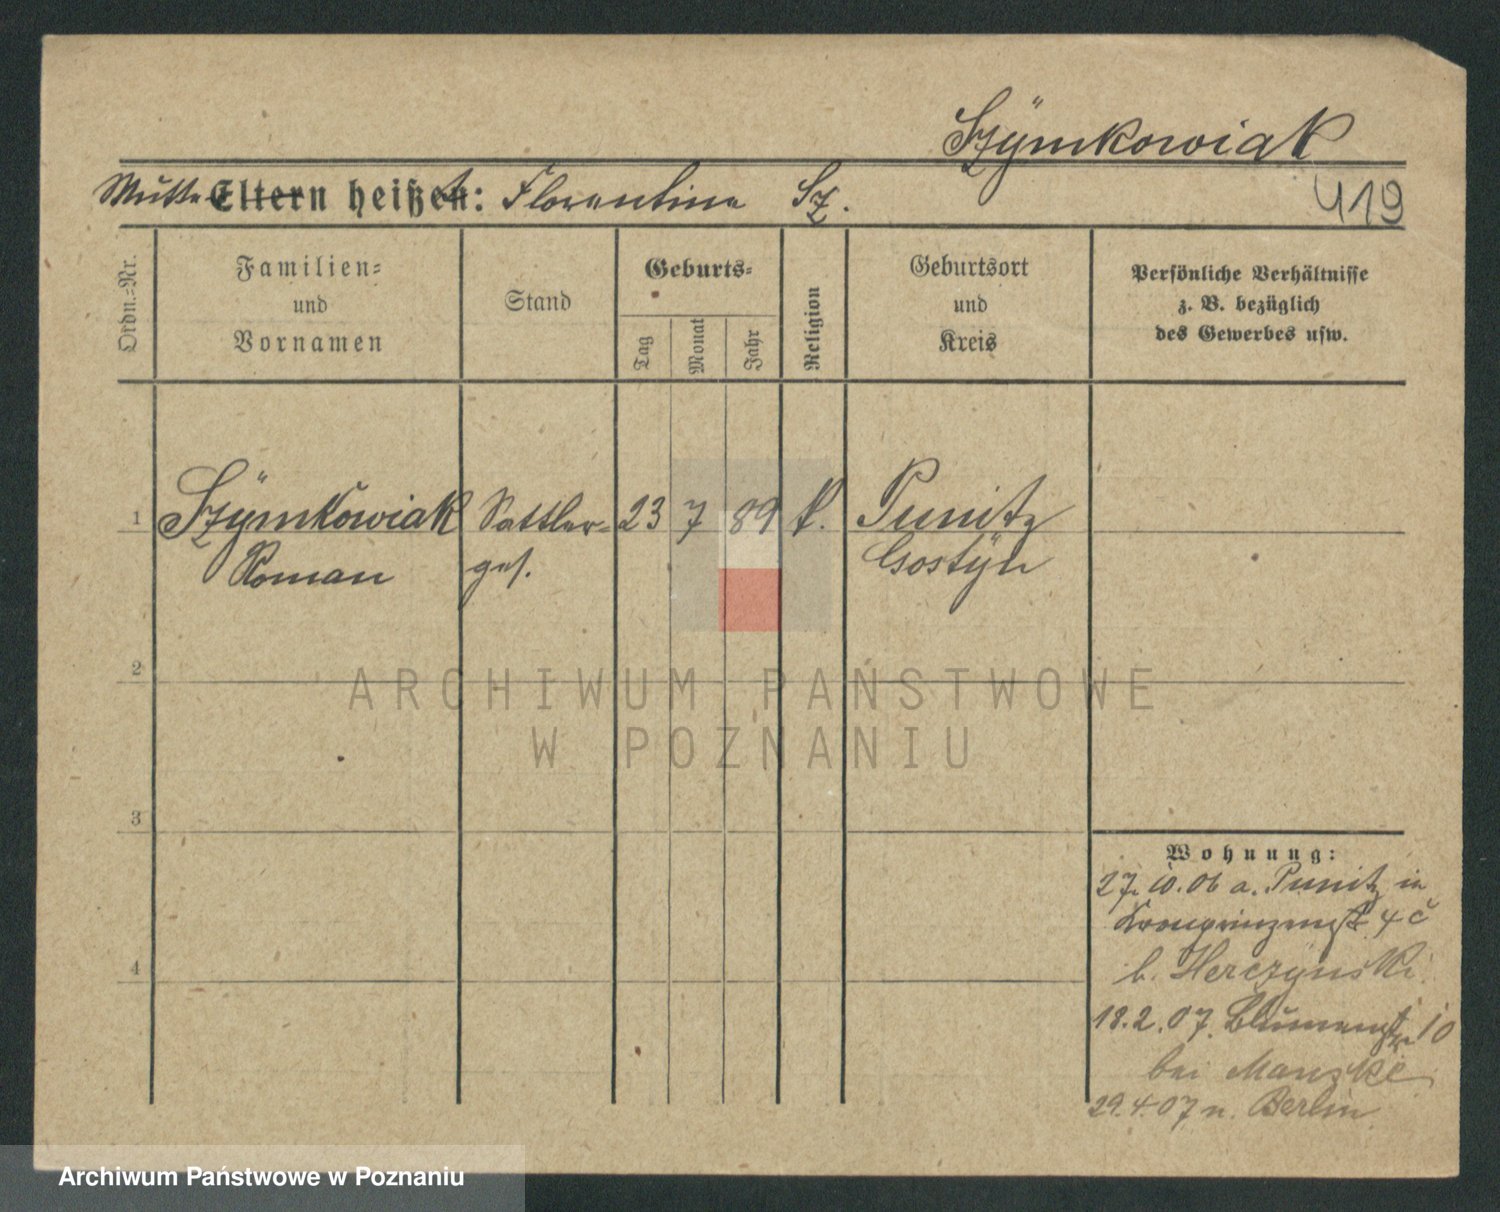 Szÿmkowiak
Mutter Eltern heißen: Florentine Sz.
419
Ordn.-Nr.
Familien-
und
Vornamen
Stand
Geburts-
Tag
Monat
Jahr
Religion
Geburtsort
und
Kreis
Persönliche Verhältnisse
z. B. bezüglich
des Gewerbes usw.
1 Szÿmkowiak Sattler- 23 7 89 k. Punitz
Roman ges. Gostÿn
2
ARCHIWUM PAŃSTWOWE
W POZNANIU
3
Wohnung:
27.10.06 a. Punitz in
Kronprinzenst 4
b. Herczÿnski
4
18.2.07. Blumenstr 10
bei Manske
29.4.07 n. Berlin
Archiwum Państwowe w Poznaniu